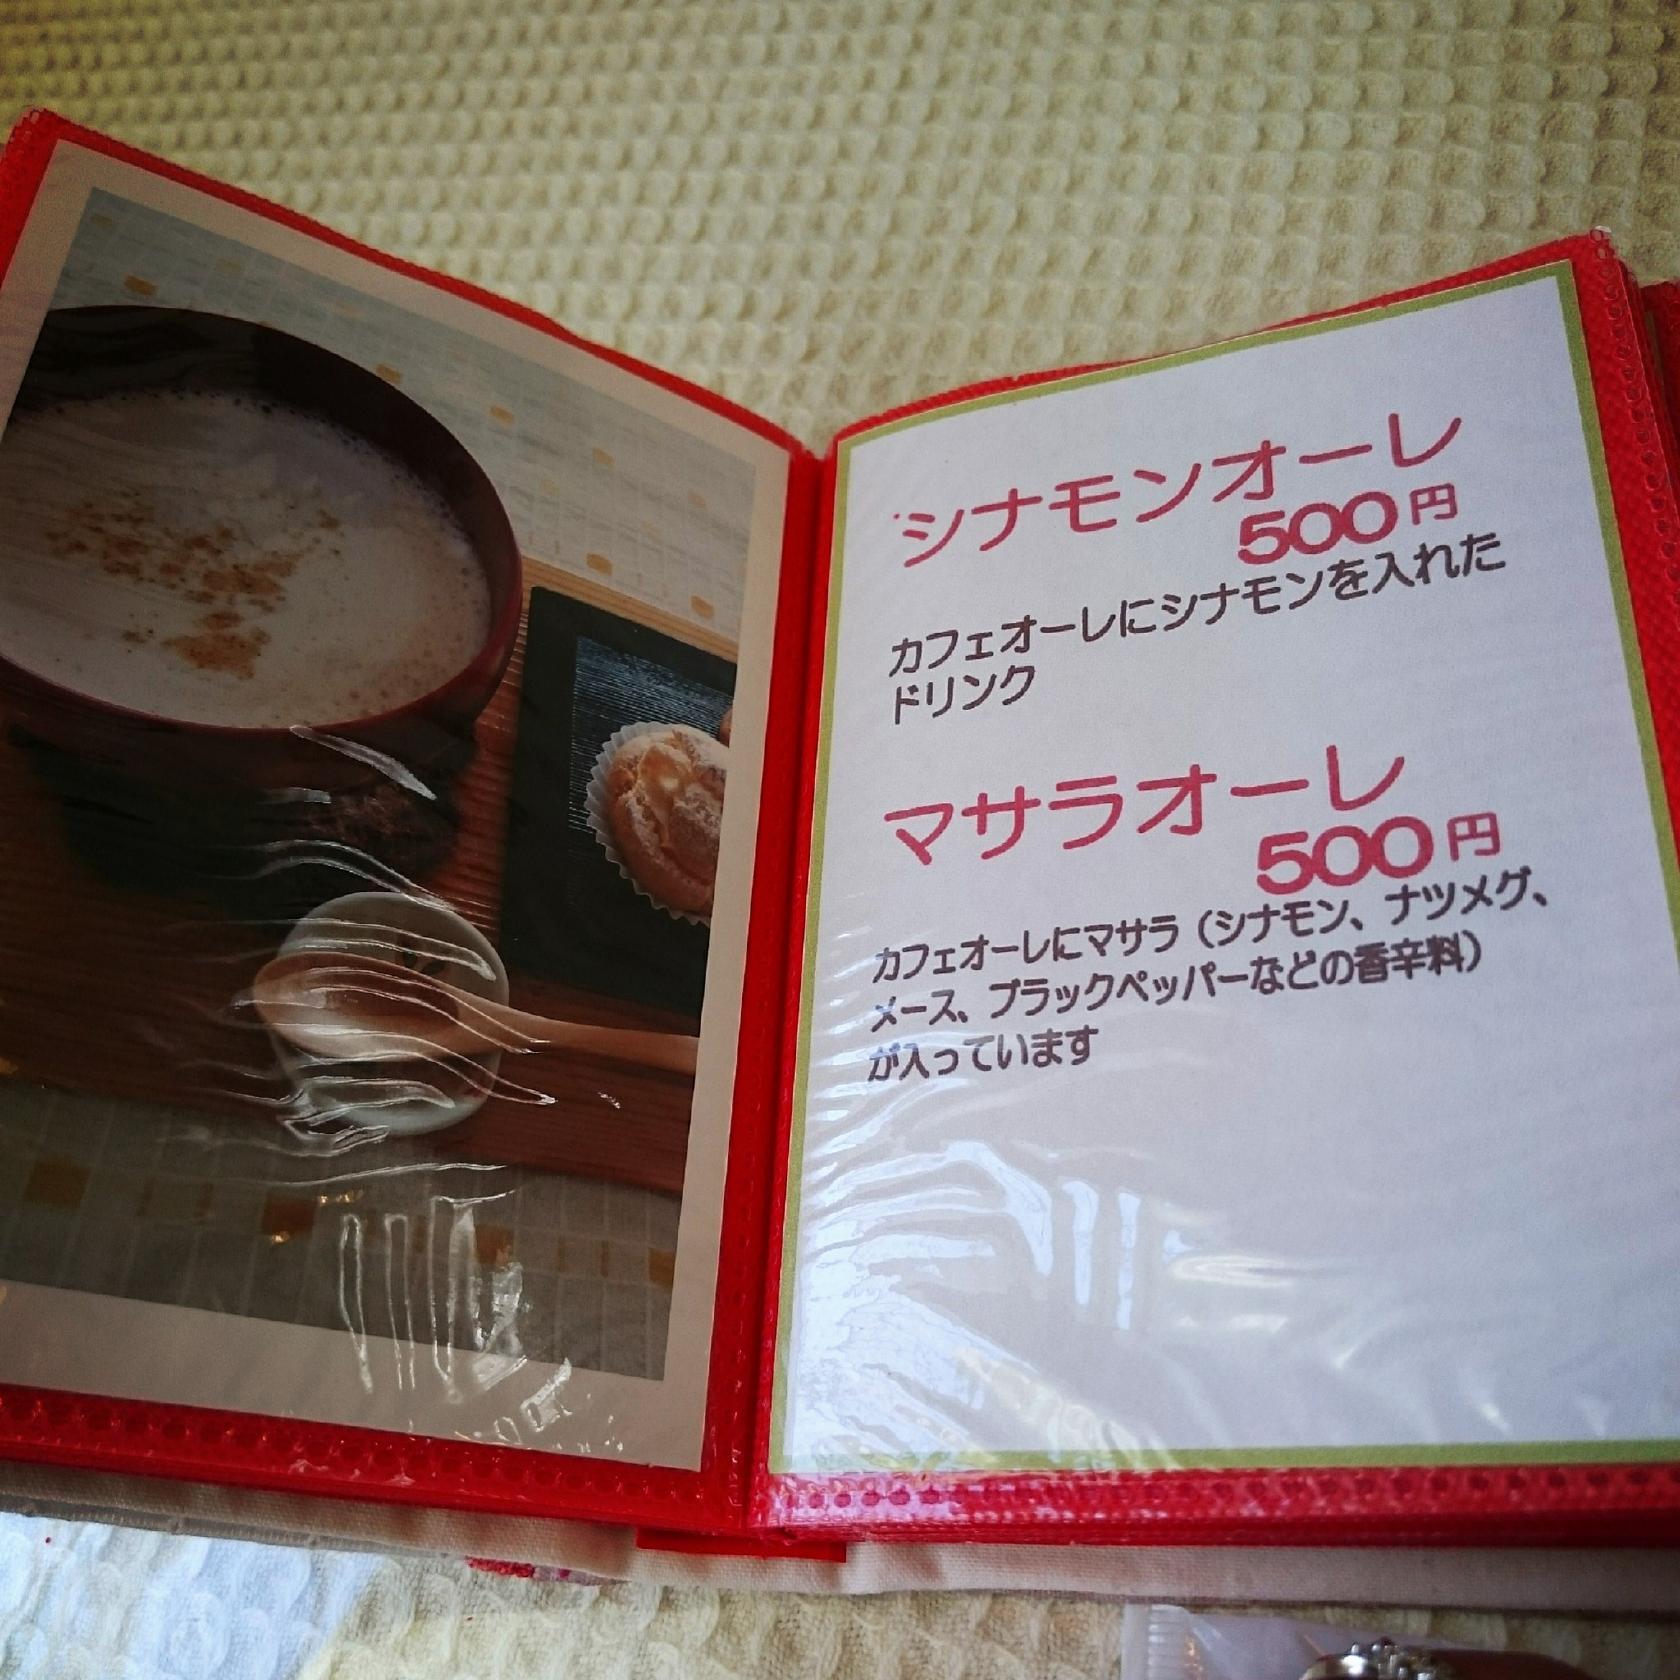 シナモンオーレ
500円
カフェオーレにシナモンを入れた
ドリンク
マサラオーレ
500円
カフェオーレにマサラ（シナモン、ナツメグ、
メース、ブラックペッパーなどの香辛料）
が入っています